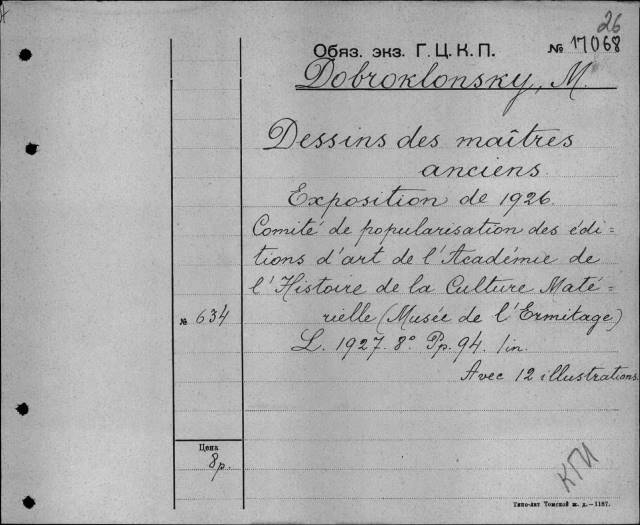 26
Обяз. экз. Г.Ц.К.П. № 17068
Dobroklonsky, M.
Dessins des maîtres
anciens.
Exposition de 1926.
Comité de popularisation des édi-
tions d'art de l'Académie de
l'Histoire de la Culture Maté-
№ 634
rielle (Musée de l'Ermitage)
L. 1927. 8° Pp. 94. 1 in.
Avec 12 illustrations.
Цена
8 р.
КГИ
Типо-лит Томской ж. д.—1187.